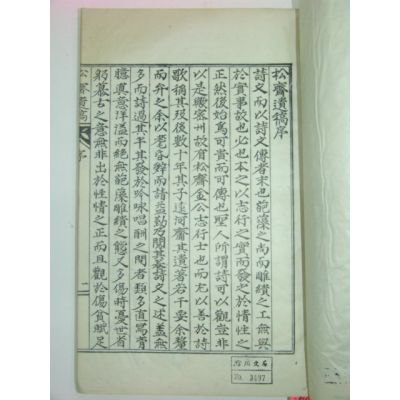 松齋遺稿序
詩文而以詩文傳者末也葩藻之尚而雕繢之工無與
於實事故也必也本之以志行之實而發之於情性之
正然後始爲可貴而可傳也聖人所謂詩可以觀豈非
以是歟密州故有松齋金公志行士也而尤以善於詩
歌稱其歿後數十年其子遠齋其遺著若干要余釐
而弁之余以老昏辭而請益勤及閱其藁詩文之述蓋無
多而詩過其半其發於吟咏唱酬之間者類多直寫胷
臆眞意洋溢而絶無葩藻雕繢之態又多傷時憂世省
躬慕古之意無非出於性情之正而且觀於傷貧賦足
松齋遺稿
序
一
No. 3497